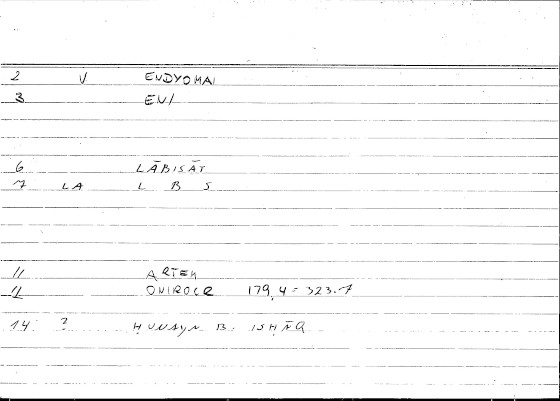 2 V ENDYOMAI
3 EN/
6 LĀBISĀT
7 LA L B S
11 ARTEM
12 ONIROCR 179,4 = 323.7
14 ? ḤUNAYN B. ISḤĀQ